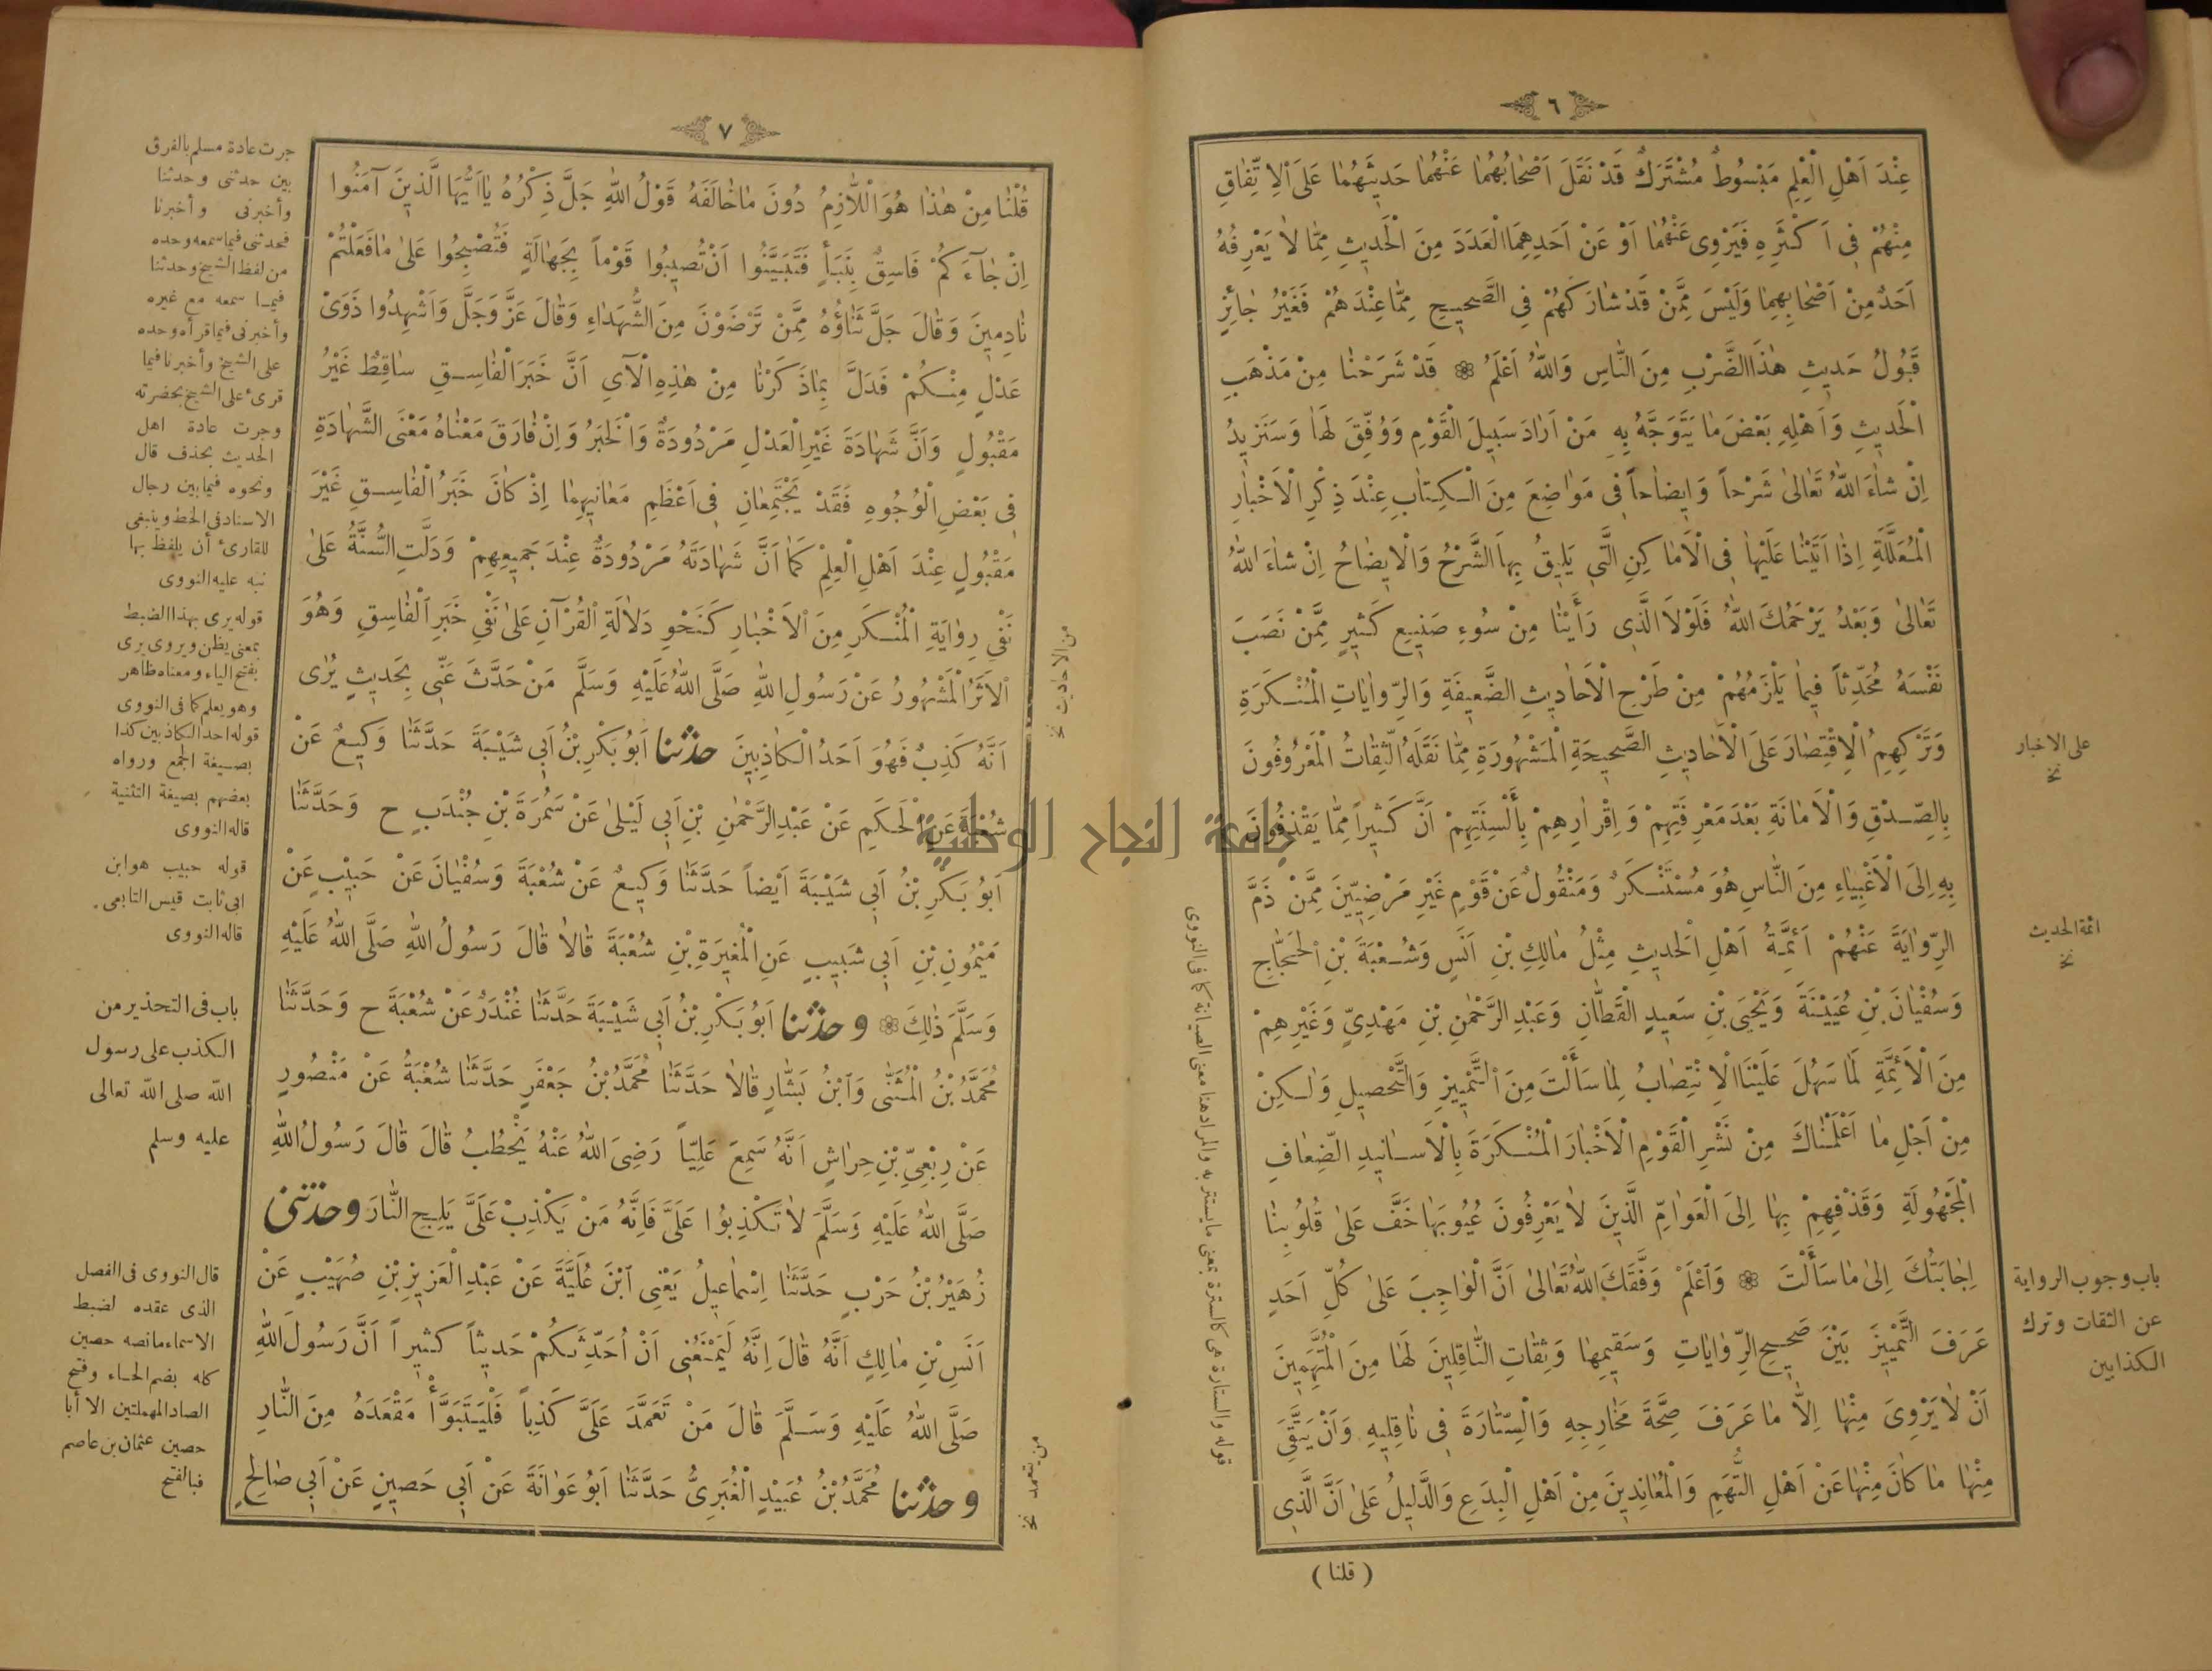 ٦
عِنْدَ اَهْلِ الْعِلِمِ مَبْسُوطٌ مُشْتَرَكٌ قَدْ نَقَلَ اَصْحٰابُهُمٰا عَنْهُمٰا حَدِيثَهُمٰا عَلَى الْاِتِّفٰاقِ
مِنْهُمْ فِى اَكْثَرِهِ فَيَرْوِى عَنْهُمٰا اَوْ عَنْ اَحَدِهِمَا الْعَدَدَ مِنَ الْحَدِيثِ مِمّٰا لاٰ يَعْرِفُهُ
اَحَدٌ مِنْ اَصْحٰابِهِمٰا وَلَيْسَ مِمَّنْ قَدْ شٰارَكَهُمْ فِى الصَّحِيحِ مِمّٰا عِنْدَهُمْ فَغَيْرُ جٰائِزٍ
قَبُولُ حَدِيثِ هٰذَا الضَّرْبِ مِنَ النّٰاسِ وَاللّٰهُ اَعْلَمُ ❁ قَدْ شَرَحْنٰا مِنْ مَذْهَبِ
الْحَدِيثِ وَاَهْلِهِ بَعْضَ مٰا يَتَوَجَّهُ بِهِ مَنْ اَرٰادَ سَبِيلَ الْقَوْمِ وَوُفِّقَ لَهٰا وَسَنَزِيدُ
اِنْ شٰاءَ اللّٰهُ تَعٰالىٰ شَرْحاً وَايضٰاحاً فِى مَوٰاضِعَ مِنَ الْكِتٰابِ عِنْدَ ذِكْرِ الْاَخْبٰارِ
الْمُعَلَّلَةِ اِذٰا اَتَيْنٰا عَلَيْهٰا فِى الْاَمٰاكِنِ الَّتِى يَلِيقُ بِهَا الشَّرْحُ وَالْايضٰاحُ اِنْ شٰاءَ اللّٰهُ
تَعٰالىٰ وَبَعْدُ يَرْحَمُكَ اللّٰهُ فَلَوْلاَ الَّذِى رَأَيْنٰا مِنْ سُوءِ صَنِيعِ كَثِيرٍ مِمَّنْ نَصَبَ
نَفْسَهُ مُحَدِّثاً فِيمٰا يَلْزَمُهُمْ مِنْ طَرْحِ الْاَحٰادِيثِ الضَّعِيفَةِ وَالرِّوٰايٰاتِ الْمُنْكَرَةِ
وَتَرْكِهِمِ الْاِقْتِصٰارَ عَلَى الْاَحٰادِيثِ الصَّحِيحَةِ الْمَشْهُورَةِ مِمّٰا نَقَلَهُ الثِّقٰاتُ الْمَعْرُوفُونَ
بِالصِّدْقِ وَالْاَمٰانَةِ بَعْدَ مَعْرِفَتِهِمْ وَاِقْرٰارِهِمْ بِأَلْسِنَتِهِمْ اَنَّ كَثِيراً مِمّٰا يَقْذِفُونَ
بِهِ اِلَى الْاَغْبِيٰاءِ مِنَ النّٰاسِ هُوَ مُسْتَنْكَرٌ وَمَنْقُولٌ عَنْ قَوْمٍ غَيْرِ مَرْضِيِّينَ مِمَّنْ ذَمَّ
الرِّوٰايَةَ عَنْهُمْ اَئِمَّةُ اَهْلِ الْحَدِيثِ مِثْلُ مٰالِكِ بْنِ اَنَسٍ وَشُعْبَةَ بْنِ الْحَجّٰاجِ
وَسُفْيٰانَ بْنِ عُيَيْنَةَ وَيَحْيَى بْنِ سَعِيدٍ الْقَطّٰانِ وَعَبْدِ الرَّحْمٰنِ بْنِ مَهْدِيٍّ وَغَيْرِهِمْ
مِنَ الْاَئِمَّةِ لَمٰا سَهُلَ عَلَيْنَا الْاِنْتِصٰابُ لِمٰا سَأَلْتَ مِنَ التَّمْيِيزِ وَالتَّحْصِيلِ وَلٰكِنْ
مِنْ اَجْلِ مٰا اَعْلَمْنٰاكَ مِنْ نَشْرِ الْقَوْمِ الْاَخْبٰارَ الْمُنْكَرَةَ بِالْاَسٰانِيدِ الضِّعٰافِ
الْمَجْهُولَةِ وَقَذْفِهِمْ بِهٰا اِلَى الْعَوٰامِّ الَّذِينَ لاٰ يَعْرِفُونَ عُيُوبَهٰا خَفَّ عَلىٰ قُلُوبِنٰا
اِجٰابَتُكَ اِلىٰ مٰا سَأَلْتَ ❁ وَاَعْلَمْ وَفَّقَكَ اللّٰهُ تَعٰالىٰ اَنَّ الْوٰاجِبَ عَلىٰ كُلِّ اَحَدٍ
عَرَفَ التَّمْيِيزَ بَيْنَ صَحِيحِ الرِّوٰايٰاتِ وَسَقِيمِهٰا وَثِقٰاتِ النّٰاقِلِينَ لَهٰا مِنَ الْمُتَّهَمِينَ
اَنْ لاٰ يَرْوِىَ مِنْهٰا اِلاّٰ مٰا عَرَفَ صِحَّةَ مَخٰارِجِهِ وَالسِّتٰارَةَ فِى نٰاقِلِيهِ وَاَنْ يَتَّقِىَ
مِنْهٰا مٰا كٰانَ مِنْهٰا عَنْ اَهْلِ التُّهَمِ وَالْمُعٰانِدِينَ مِنْ اَهْلِ الْبِدَعِ وَالدَّلِيلُ عَلىٰ اَنَّ الَّذِى
( قلنا )
على الاخبار
نخ
ائمة الحديث
نخ
باب وجوب الرواية
عن الثقات وترك
الكذابين
قوله والستارة هى كالسترة تعنى مايستتر به والمراد هنا معنى الصيانة كما فى النووى
٧
قُلْنٰا مِنْ هٰذٰا هُوَ الْلّٰازِمُ دُونَ مٰا خٰالَفَهُ قَوْلُ اللّٰهِ جَلَّ ذِكْرُهُ يٰا اَيُّهَا الَّذِينَ آمَنُوا
اِنْ جٰاءَكُمْ فٰاسِقٌ بِنَبَأٍ فَتَبَيَّنُوا اَنْ تُصِيبُوا قَوْماً بِجَهٰالَةٍ فَتُصْبِحُوا عَلىٰ مٰا فَعَلْتُمْ
نٰادِمِينَ وَقٰالَ جَلَّ ثَنٰاؤُهُ مِمَّنْ تَرْضَوْنَ مِنَ الشُّهَدٰاءِ وَقٰالَ عَزَّ وَجَلَّ وَاَشْهِدُوا ذَوَىْ
عَدْلٍ مِنْكُمْ فَدَلَّ بِمٰا ذَكَرْنٰا مِنْ هٰذِهِ الْآىِ اَنَّ خَبَرَ الْفٰاسِقِ سٰاقِطٌ غَيْرُ
مَقْبُولٍ وَاَنَّ شَهٰادَةَ غَيْرِ الْعَدْلِ مَرْدُودَةٌ وَالْخَبَرُ وَاِنْ فٰارَقَ مَعْنٰاهُ مَعْنَى الشَّهٰادَةِ
فِى بَعْضِ الْوُجُوهِ فَقَدْ يَجْتَمِعٰانِ فِى اَعْظَمِ مَعٰانِيهِمٰا اِذْ كٰانَ خَبَرُ الْفٰاسِقِ غَيْرَ
مَقْبُولٍ عِنْدَ اَهْلِ الْعِلِمْ كَمٰا اَنَّ شَهٰادَتَهُ مَرْدُودَةٌ عِنْدَ جَمِيعِهِمْ وَدَلَّتِ السُّنَّةُ عَلىٰ
نَفْىِ رِوٰايَةِ الْمُنْكَرِ مِنَ الْاَخْبٰارِ كَنَحْوِ دَلاٰلَةِ الْقُرْآنِ عَلىٰ نَفْىِ خَبَرِ الْفٰاسِقِ وَهُوَ
الْاَثَرُ الْمَشْهُورُ عَنْ رَسُولِ اللّٰهِ صَلَّى اللّٰهُ عَلَيْهِ وَسَلَّمَ مَنْ حَدَّثَ عَنِّى بِحَدِيثٍ يُرٰى
اَنَّهُ كَذِبٌ فَهُوَ اَحَدُ الْكٰاذِبِينَ حدثنا اَبُو بَكْرِ بْنُ اَبِى شَيْبَةَ حَدَّثَنٰا وَكِيعٌ عَنْ
شُعْبَةَ عَنِ الْحَكَمِ عَنْ عَبْدِ الرَّحْمٰنِ بْنِ اَبِى لَيْلىٰ عَنْ سَمُرَةَ بْنِ جُنْدَبٍ ح وَحَدَّثَنٰا
اَبُو بَكْرِ بْنُ اَبِى شَيْبَةَ اَيْضاً حَدَّثَنٰا وَكِيعٌ عَنْ شُعْبَةَ وَسُفْيٰانَ عَنْ حَبِيْبٍ عَنْ
مَيْمُونِ بْنِ اَبِى شَبِيبٍ عَنِ الْمُغِيرَةِ بْنِ شُعْبَةَ قٰالاٰ قٰالَ رَسُولُ اللّٰهِ صَلَّى اللّٰهُ عَلَيْهِ
وَسَلَّمَ ذٰلِكَ ❁ وحدثنا اَبُو بَكْرِ بْنُ اَبِى شَيْبَةَ حَدَّثَنٰا غُنْدَرٌ عَنْ شُعْبَةَ ح وَحَدَّثَنٰا
مُحَمَّدُ بْنُ الْمُثَنّٰى وَابْنُ بَشّٰارٍ قٰالاٰ حَدَّثَنٰا مُحَمَّدُ بْنُ جَعْفَرٍ حَدَّثَنٰا شُعْبَةُ عَنْ مَنْصُورٍ
عَنْ رِبْعِيِّ بْنِ حِرٰاشٍ اَنَّهُ سَمِعَ عَلِيّاً رَضِىَ اللّٰهُ عَنْهُ يَخْطُبُ قٰالَ قٰالَ رَسُولُ اللّٰهِ
صَلَّى اللّٰهُ عَلَيْهِ وَسَلَّمَ لاٰ تَكْذِبُوا عَلَىَّ فَاِنَّهُ مَنْ يَكْذِبْ عَلَىَّ يَلِجِ النّٰارَ وحدثنى
زُهَيْرُ بْنُ حَرْبٍ حَدَّثَنٰا اِسْمٰاعِيلُ يَعْنِى ابْنَ عُلَيَّةَ عَنْ عَبْدِ الْعَزِيزِ بْنِ صُهَيْبٍ عَنْ
اَنَسِ بْنِ مٰالِكٍ اَنَّهُ قٰالَ اِنَّهُ لَيَمْنَعُنِى اَنْ اُحَدِّثَكُمْ حَدِيثاً كَثِيراً اَنَّ رَسُولَ اللّٰهِ
صَلَّى اللّٰهُ عَلَيْهِ وَسَلَّمَ قٰالَ مَنْ تَعَمَّدَ عَلَىَّ كَذِباً فَلْيَتَبَوَّأْ مَقْعَدَهُ مِنَ النّٰارِ
وحدثنا مُحَمَّدُ بْنُ عُبَيْدٍ الْغُبَرِىُّ حَدَّثَنٰا اَبُو عَوٰانَةَ عَنْ اَبِى حَصِينٍ عَنْ اَبِى صٰالِحٍ
من الاحاديث نخ
من يتعمد نخ
جرت عادة مسلم بالفرق
بين حدثنى وحدثنا
وأخبرنى وأخبرنا
فحدثنى فيما سمعه وحده
من لفظ الشيخ وحدثنا
فيما سمعه مع غيره
وأخبرنى فيما قرأه وحده
على الشيخ وأخبرنا فيما
قرىء على الشيخ بحضرته
وجرت عادة اهل
الحديث بحذف قال
ونحوه فيما بين رجال
الاسناد فى الخط وينبغى
للقارىء أن يلفظ بها
نبه عليه النووى
قوله يرى بهذا الضبط
بمعنى يظن ويروى يرى
بفتح الياء ومعناه ظاهر
وهو يعلم كما فى النووى
قوله احد الكاذبين كذا
بصيغة الجمع ورواه
بعضهم بصيغة التثنية
قاله النووى
قوله حبيب هو ابن
ابى ثابت قيس التابعى
قاله النووى
باب فى التحذير من
الكذب على رسول
الله صلى الله تعالى
عليه وسلم
قال النووى فى الفصل
الذى عقده لضبط
الاسماء مانصه حصين
كله بضم الحاء وفتح
الصاد المهملتين الا أبا
حصين عثمان بن عاصم
فبالفتح
جامعة النجاح الوطنية